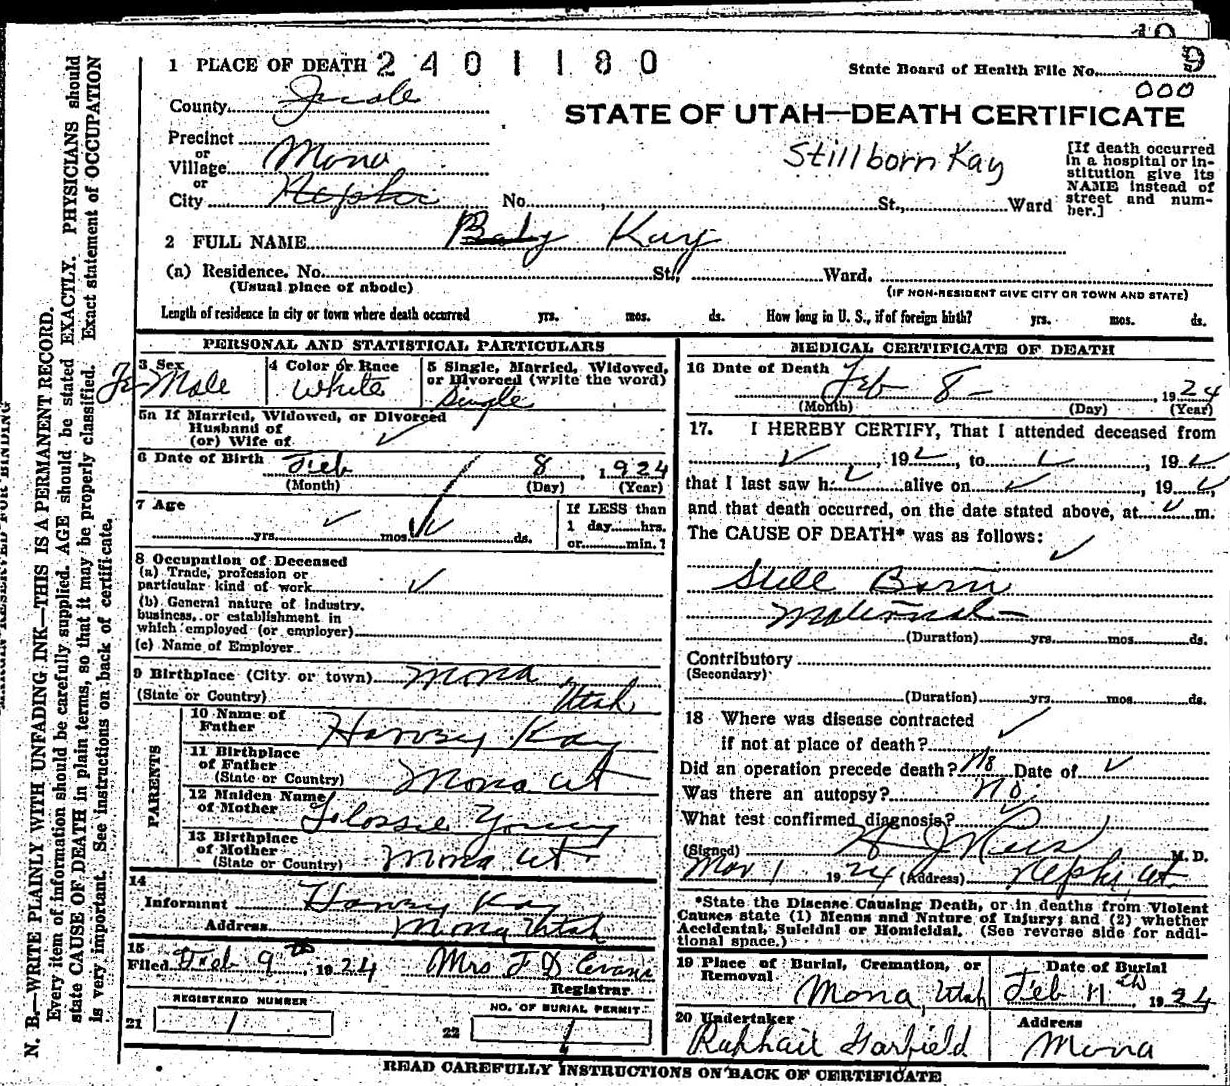 9
000
1 PLACE OF DEATH 2 4 0 1 1 8 0
State Board of Health File No.
County Juab
STATE OF UTAH—DEATH CERTIFICATE
Precinct
or
Village Mona
or
City Nephi
Stillborn Kay
[If death occurred
in a hospital or in-
stitution give its
NAME instead of
street and num-
ber.]
No. St., Ward
2 FULL NAME Baby Kay
(a) Residence. No. St., Ward.
(Usual place of abode)
(IF NON-RESIDENT GIVE CITY OR TOWN AND STATE)
Length of residence in city or town where death occurred yrs. mos. ds. How long in U. S., if of foreign birth? yrs. mos. ds.
PERSONAL AND STATISTICAL PARTICULARS
3 Sex
Fe Male
4 Color or Race
White
5 Single, Married, Widowed,
or Divorced (write the word)
Single
5a If Married, Widowed, or Divorced
Husband of
(or) Wife of
6 Date of Birth Feb 8, 1924
(Month) (Day) (Year)
7 Age
yrs. mos. ds.
If LESS than
1 day hrs.
or min.?
8 Occupation of Deceased
(a) Trade, profession or
particular kind of work
(b) General nature of Industry,
business, or establishment in
which employed (or employer)
(c) Name of Employer
9 Birthplace (City or town) Mona,
(State or Country) Utah
PARENTS
10 Name of
Father Harvey Kay
11 Birthplace
of Father
(State or Country) Mona Ut
12 Maiden Name
of Mother Flossie Young
13 Birthplace
of Mother
(State or Country) Mona Ut
14
Informant Harvey Kay
Address Mona, Utah
15
Filed Feb 9th 1924 Mrs F D Evans
Registrar
REGISTERED NUMBER
21 1
NO. OF BURIAL PERMIT
22 1
MEDICAL CERTIFICATE OF DEATH
16 Date of Death
Feb 8 - , 1924
(Month) (Day) (Year)
17. I HEREBY CERTIFY, That I attended deceased from
, 19 , to , 19
that I last saw h alive on , 19 ,
and that death occurred, on the date stated above, at m.
The CAUSE OF DEATH* was as follows:
Still Born
(Duration) yrs. mos. ds.
Contributory
(Secondary)
(Duration) yrs. mos. ds.
18 Where was disease contracted
if not at place of death?
Did an operation precede death? No Date of
Was there an autopsy? No.
What test confirmed diagnosis?
(Signed) M. D.
1924 (Address) Nephi, Ut.
*State the Disease Causing Death, or in deaths from Violent
Causes state (1) Means and Nature of Injury; and (2) whether
Accidental, Suicidal or Homicidal. (See reverse side for addi-
tional space.)
19 Place of Burial, Cremation, or
Removal
Mona, Utah
Date of Burial
Feb 11th 1924
20 Undertaker
Garfield
Address
Mona
READ CAREFULLY INSTRUCTIONS ON BACK OF CERTIFICATE
MARGIN RESERVED FOR BINDING
N. B.—WRITE PLAINLY WITH UNFADING INK—THIS IS A PERMANENT RECORD.
Every item of information should be carefully supplied. AGE should be stated EXACTLY. PHYSICIANS should
state CAUSE OF DEATH in plain terms, so that it may be properly classified. Exact statement of OCCUPATION
is very important. See instructions on back of certificate.